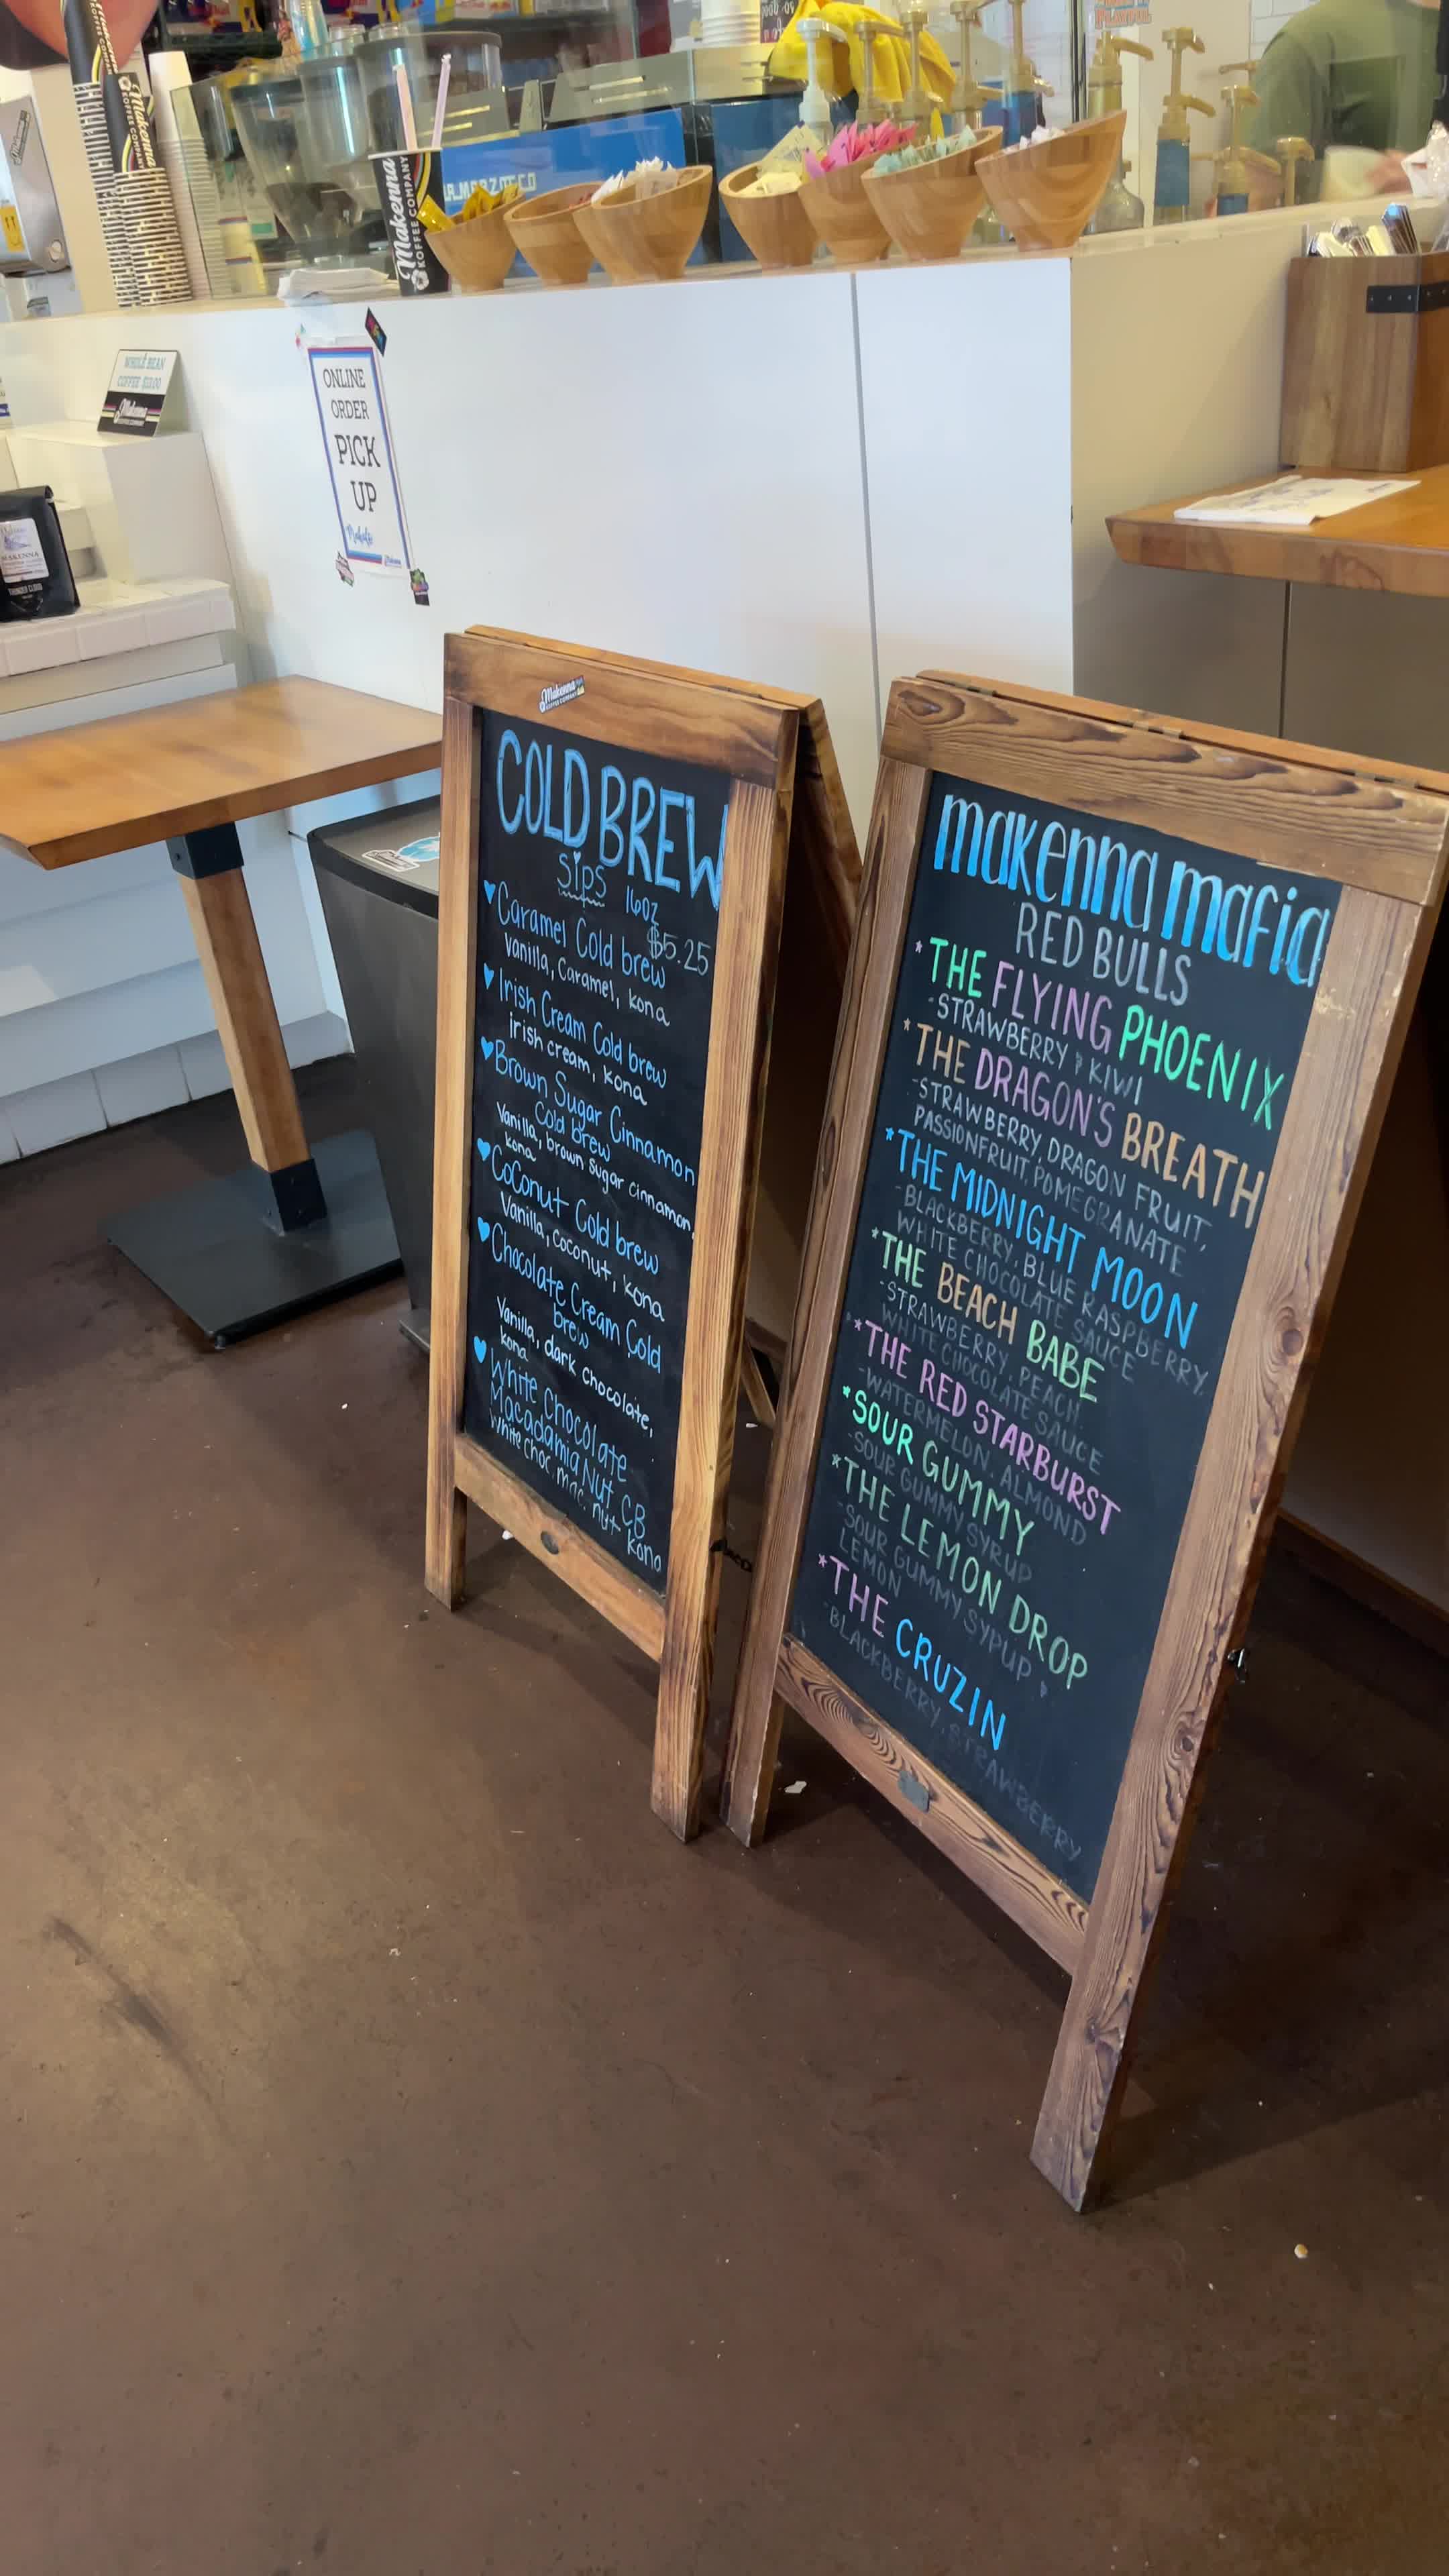 Makenna
KOFFEE COMPANY
Makenna
KOFFEE COMPANY
WHOLE BEAN
COFFEE $18.00
Makenna
ONLINE
ORDER
PICK
UP
Mahalo
MAKENNA
THUNDER CLOUD
Makenna
KOFFEE COMPANY
COLD BREW
Sips 16oz
$5.25
Caramel Cold brew
Vanilla, Caramel, kona
Irish Cream Cold brew
irish cream, kona
Brown Sugar Cinnamon
Cold brew
Vanilla, brown sugar cinnamon,
kona
Coconut Cold brew
Vanilla, coconut, kona
Chocolate Cream Cold
brew
Vanilla, dark chocolate,
kona
White Chocolate
Macadamia Nut CB
White choc, mac. nut kona
makenna mafia
RED BULLS
*THE FLYING PHOENIX
-STRAWBERRY & KIWI
*THE DRAGON'S BREATH
-STRAWBERRY, DRAGON FRUIT,
PASSIONFRUIT, POMEGRANATE
*THE MIDNIGHT MOON
-BLACKBERRY, BLUE RASPBERRY,
WHITE CHOCOLATE SAUCE
*THE BEACH BABE
-STRAWBERRY, PEACH
WHITE CHOCOLATE SAUCE
*THE RED STARBURST
-WATERMELON, ALMOND
*SOUR GUMMY
-SOUR GUMMY SYRUP
*THE LEMON DROP
-SOUR GUMMY SYPUP &
LEMON
*THE CRUZIN
-BLACKBERRY, STRAWBERRY